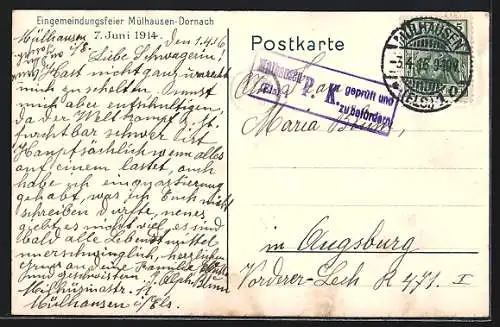 Eingemeindungsfeier Mülhausen-Dornach
7. Juni 1914.
Mülhausen den 1. 4. 16
i/E.
Liebe Schwägerin!
Hast nicht ganz unrecht
mich zu schelten. Musst
mich aber entschuldigen,
da der Weltkampf
furchtbar schwer ist
Hauptsächlich wenn alles
auf einem lastet, auch
habe ich einquartierung
gehabt, was ich Euch nicht
schreiben durfte, neues
giebt es nicht viel, es sind
bald alle Lebensmittel
unerschwinglich, herzlichen
Gruss an deine Familie
und Geschwistern
Alph. Blum
Mülhausen i/Els.
Postkarte
MÜLHAUSEN
(ELS.) 1
Mülhausen
(Els.)
P. K.
geprüft und
zu befördern
Maria Blum,
in Augsburg
Vorderer-Lech R 471. I